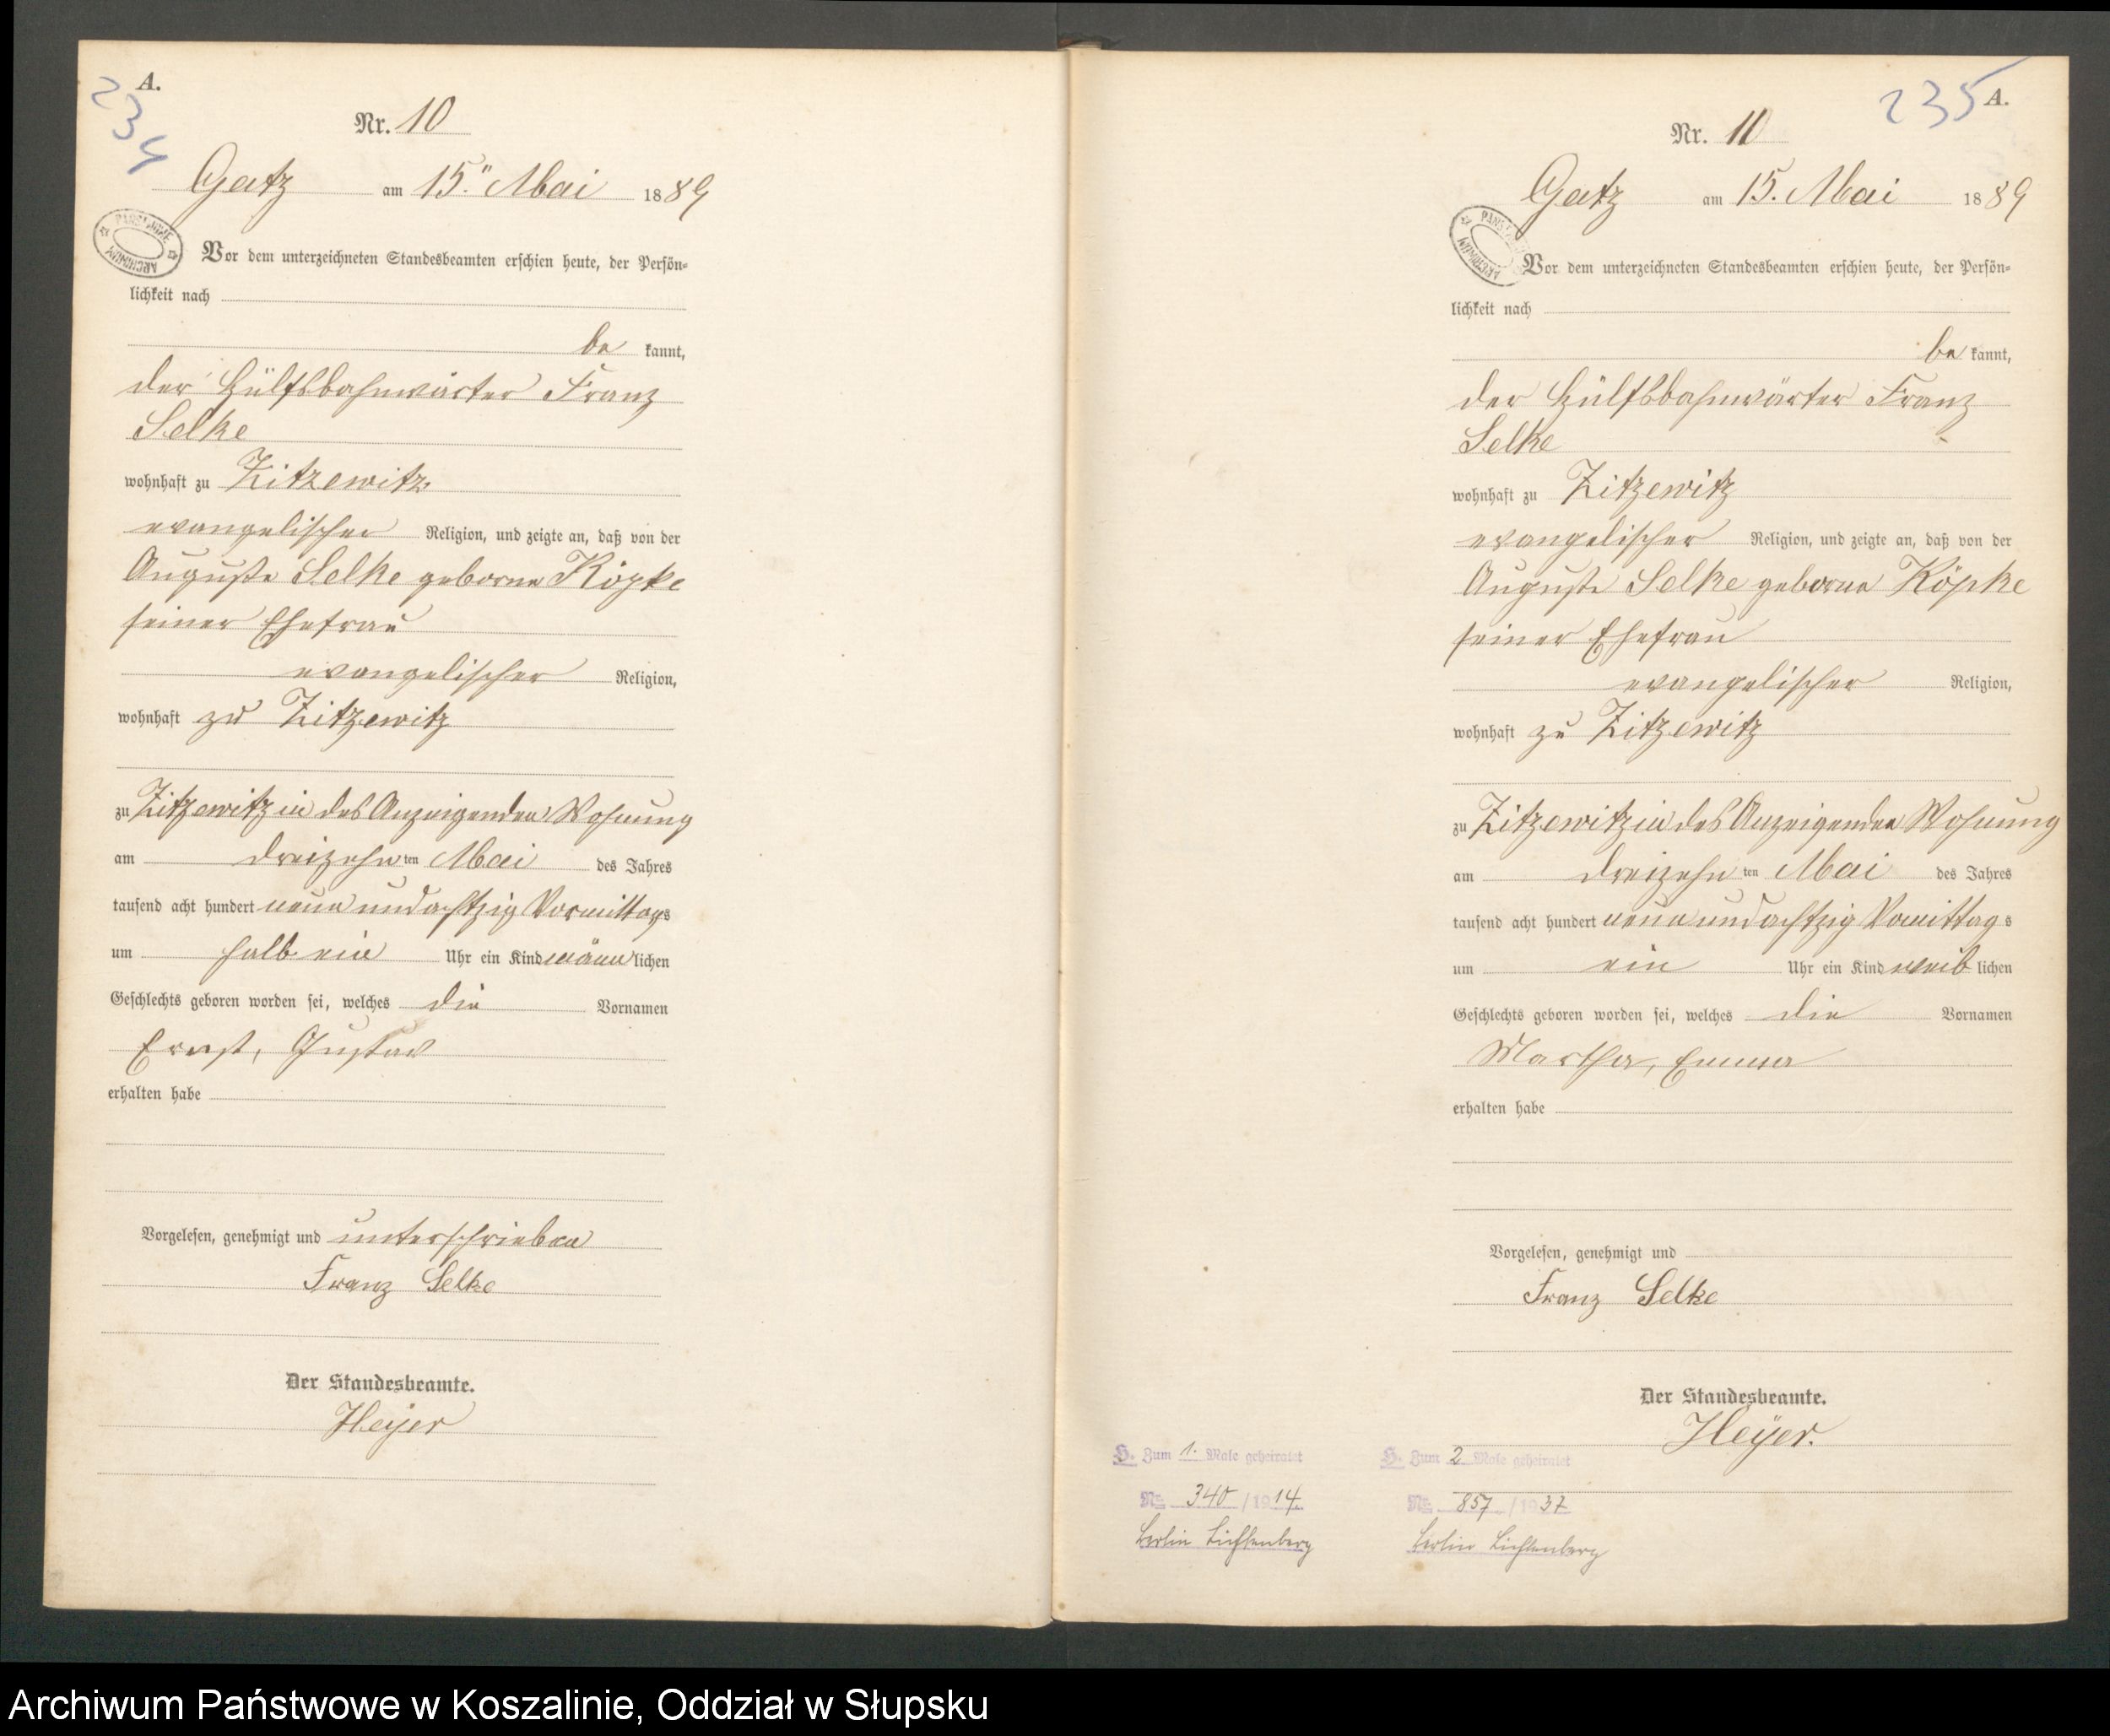 A.
234
Nr. 10
Gatz am 15. Mai 1889
PAŃSTWOWE ARCHIWUM
Vor dem unterzeichneten Standesbeamten erschien heute, der Persön-
lichkeit nach
be kannt,
der Hülfsbahnwärter Franz
Selke
wohnhaft zu Zitzewitz
evangelischer Religion, und zeigte an, daß von der
Auguste Selke geborne Köpke
seiner Ehefrau
evangelischer Religion,
wohnhaft zu Zitzewitz
zu Zitzewitz in des Anzeigenden Wohnung
am dreizehn ten Mai des Jahres
tausend acht hundert neun und achtzig Vormittags
um halb ein Uhr ein Kind männlichen
Geschlechts geboren worden sei, welches die Vornamen
Ernst, Gustav
erhalten habe
Vorgelesen, genehmigt und unterschrieben
Franz Selke
Der Standesbeamte.
Heyer
235 A.
Nr. 11
Gatz am 15. Mai 1889
PAŃSTWOWE ARCHIWUM
Vor dem unterzeichneten Standesbeamten erschien heute, der Persön-
lichkeit nach
be kannt,
der Hülfsbahnwärter Franz
Selke
wohnhaft zu Zitzewitz
evangelischer Religion, und zeigte an, daß von der
Auguste Selke geborne Köpke
seiner Ehefrau
evangelischer Religion,
wohnhaft zu Zitzewitz
zu Zitzewitz in des Anzeigenden Wohnung
am dreizehn ten Mai des Jahres
tausend acht hundert neun und achtzig Vomittags
um ein Uhr ein Kind weiblichen
Geschlechts geboren worden sei, welches die Vornamen
Martha, Emma
erhalten habe
Vorgelesen, genehmigt und
Franz Selke
Der Standesbeamte.
Heÿer.
H. Zum 1. Male geheiratet
Nr. 340 / 1914
Berlin Lichtenberg
H. Zum 2 Male geheiratet
Nr. 857 / 1937
Berlin Lichtenberg
Archiwum Państwowe w Koszalinie, Oddział w Słupsku